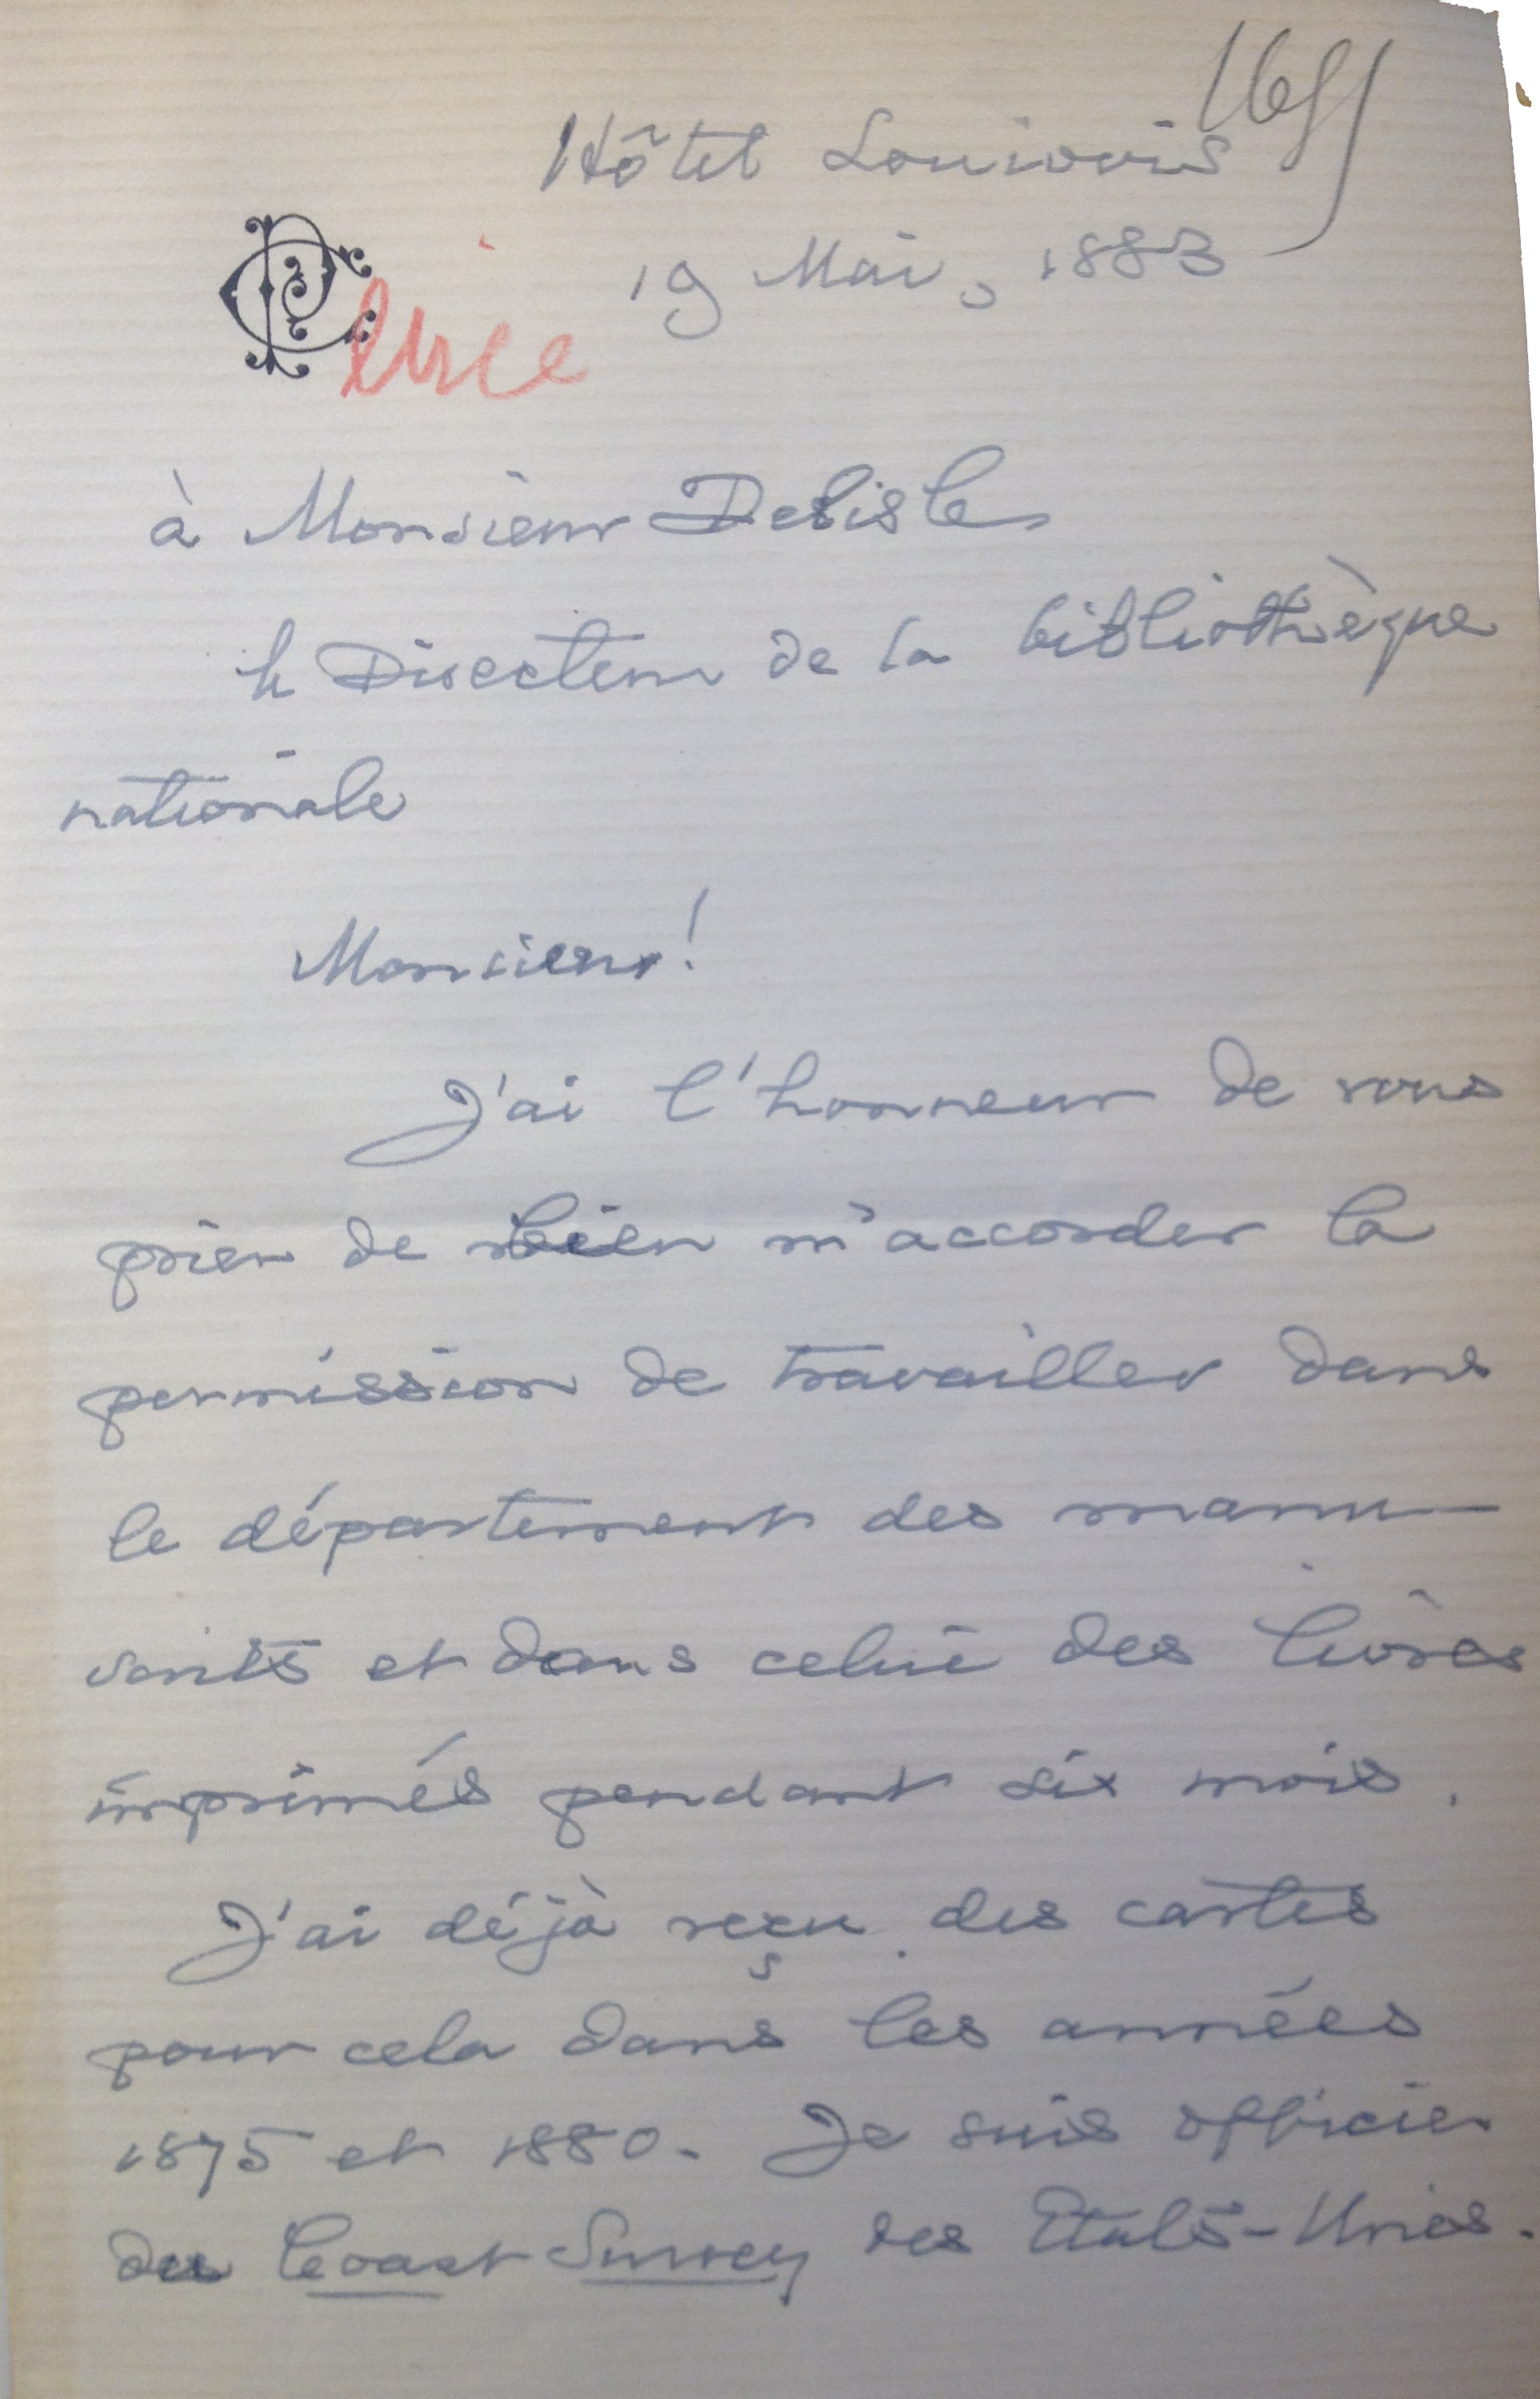 Hôtel Louvois
19 Mai, 1883
à Monsieur Delisle
le Directeur de la bibliothèque
nationale
Monsieur!
J'ai l'honneur de vous
prier de bien m'accorder la
permission de travailler dans
le département des manu-
scrits et dans celui des livres
imprimés pendant six mois.
J'ai déjà reçu des cartes
pour cela dans les années
1875 et 1880. Je suis officier
du Coast Survey des Etats-Unies.